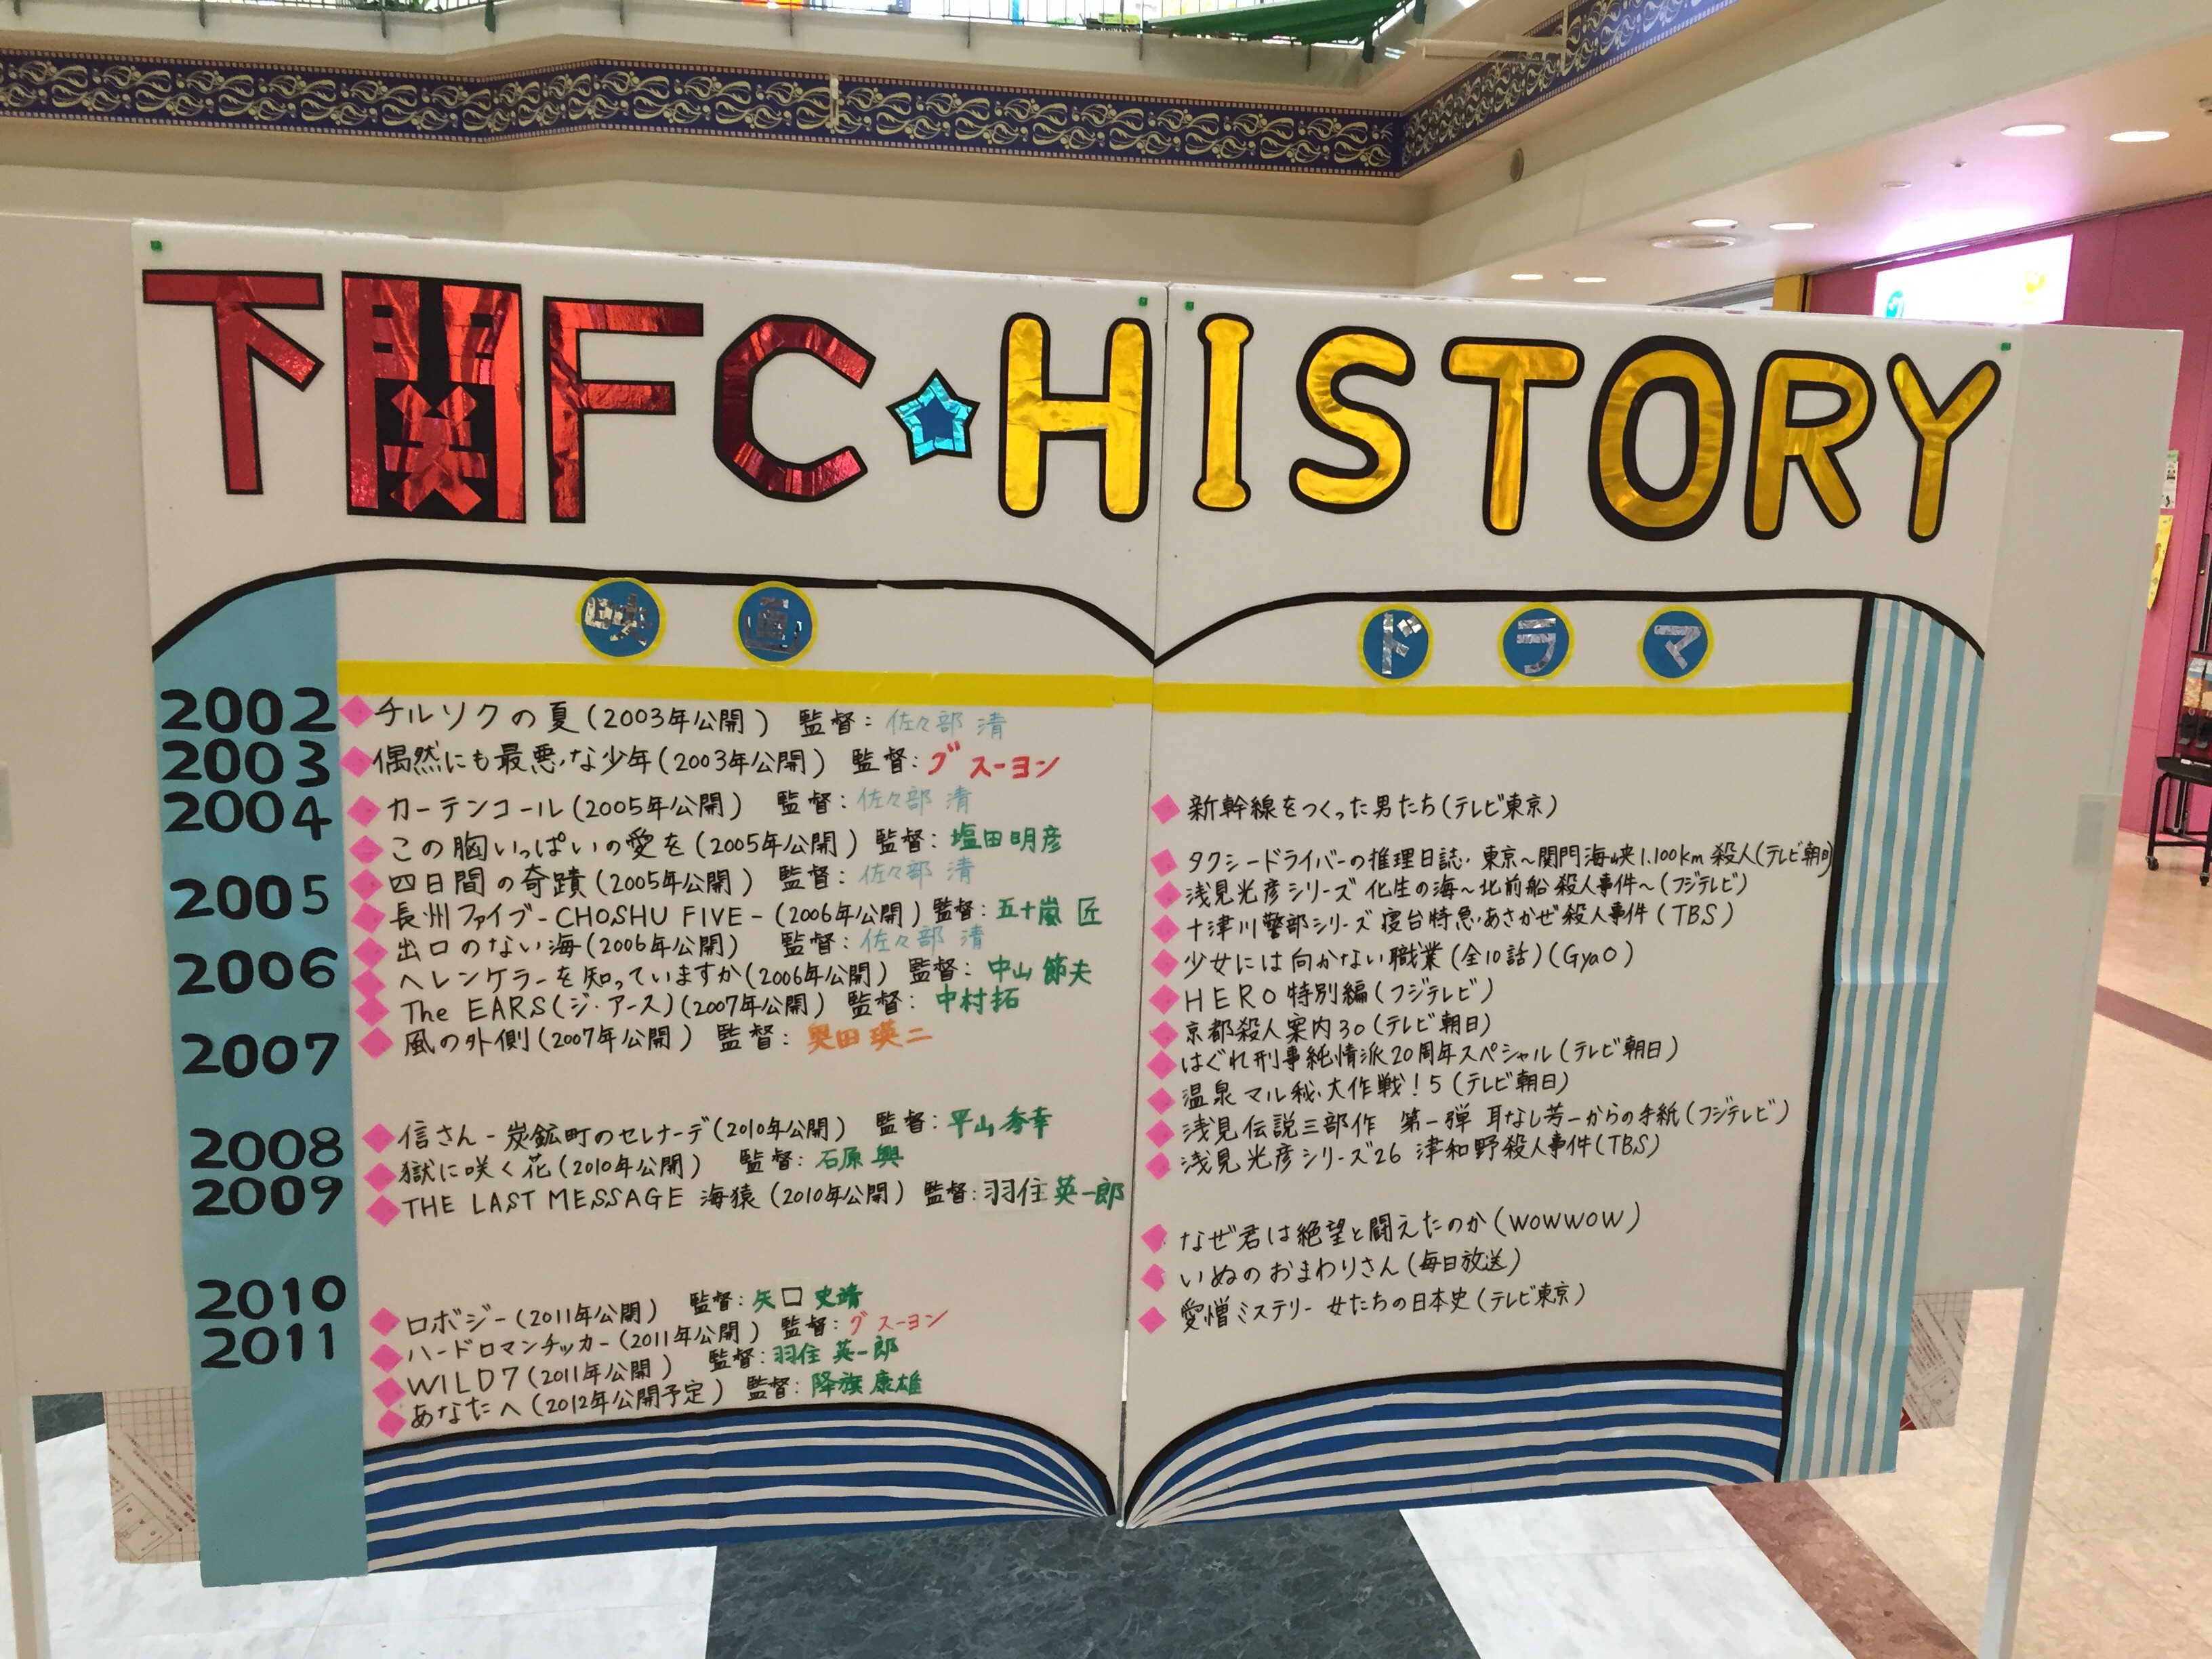 下関FC☆HISTORY
映画
2002
チルソクの夏(2003年公開) 監督:佐々部 清
2003
偶然にも最悪な少年(2003年公開) 監督:グ スーヨン
2004
カーテンコール(2005年公開) 監督:佐々部 清
この胸いっぱいの愛を(2005年公開) 監督:塩田明彦
2005
四日間の奇蹟(2005年公開) 監督:佐々部 清
長州ファイブ-CHOSHU FIVE-(2006年公開) 監督:五十嵐 匠
出口のない海(2006年公開) 監督:佐々部 清
2006
ヘレンケラーを知っていますか(2006年公開) 監督:中山 節夫
The EARS(ジ・アース)(2007年公開) 監督:中村拓
2007
風の外側(2007年公開) 監督:奥田 瑛二
2008
信さん-炭鉱町のセレナーデ(2010年公開) 監督:平山秀幸
獄に咲く花(2010年公開) 監督:石原 興
2009
THE LAST MESSAGE 海猿(2010年公開) 監督:羽住 英一郎
2010
ロボジー(2011年公開) 監督:矢口 史靖
2011
ハードロマンチッカー(2011年公開) 監督:グ スーヨン
WILD7(2011年公開) 監督:羽住 英一郎
あなたへ(2012年公開予定) 監督:降旗 康雄
ドラマ
新幹線をつくった男たち(テレビ東京)
タクシードライバーの推理日誌・東京~関門海峡1.100km殺人(テレビ朝日)
浅見光彦シリーズ 化生の海~北前船殺人事件~(フジテレビ)
十津川警部シリーズ 寝台特急あさかぜ殺人事件(TBS)
少女には向かない職業(全10話)(GyaO)
HERO特別編(フジテレビ)
京都殺人案内30(テレビ朝日)
はぐれ刑事純情派20周年スペシャル(テレビ朝日)
温泉マル秘大作戦!5(テレビ朝日)
浅見伝説三部作 第一弾 耳なし芳一からの手紙(フジテレビ)
浅見光彦シリーズ26 津和野殺人事件(TBS)
なぜ君は絶望と闘えたのか(WOWWOW)
いぬのおまわりさん(毎日放送)
愛憎ミステリー 女たちの日本史(テレビ東京)